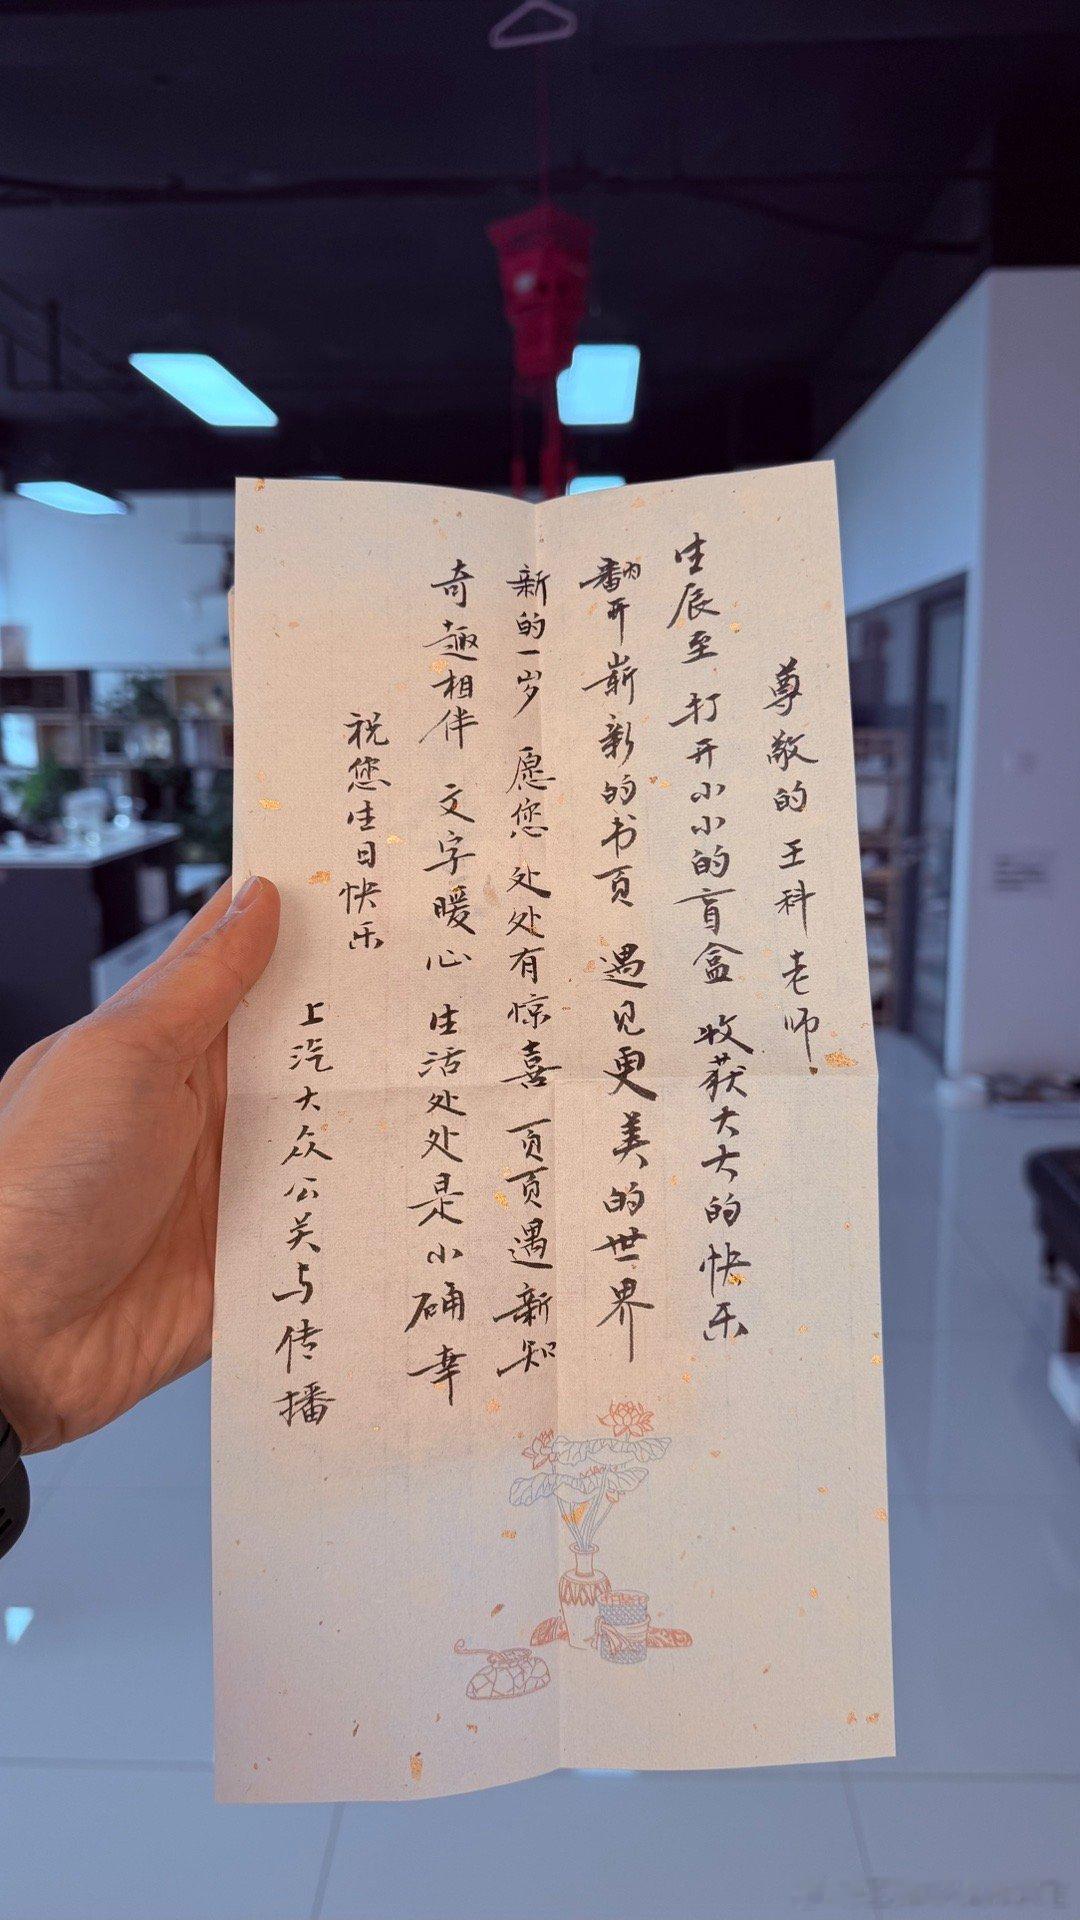 尊敬的王科老师
生辰至 打开小小的盲盒 收获大大的快乐
翻开崭新的书页 遇见更美的世界
新的一岁 愿您处处有惊喜 页页遇新知
奇趣相伴 文字暖心 生活处处是小确幸
祝您生日快乐
上汽大众公关与传播